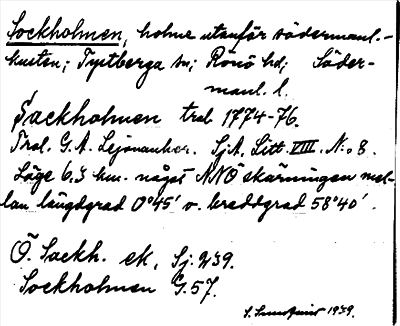 Sockholmen, holme utanför södermanl.-
kusten; Tystberga sn; Rönö hd; Söder-
manl. l.
Sackholmen trol 1774-76.
Trol. G. A. Lejonanker. Sj.A. Litt. VIII. No 8.
Läge 6,3 km. något NNO skärningen mel-
lan längdgrad 0°45' o. breddgrad 58°40'.
Ö. Sackh. ek. Sj. 239.
Sockholmen G. 57.
1939.